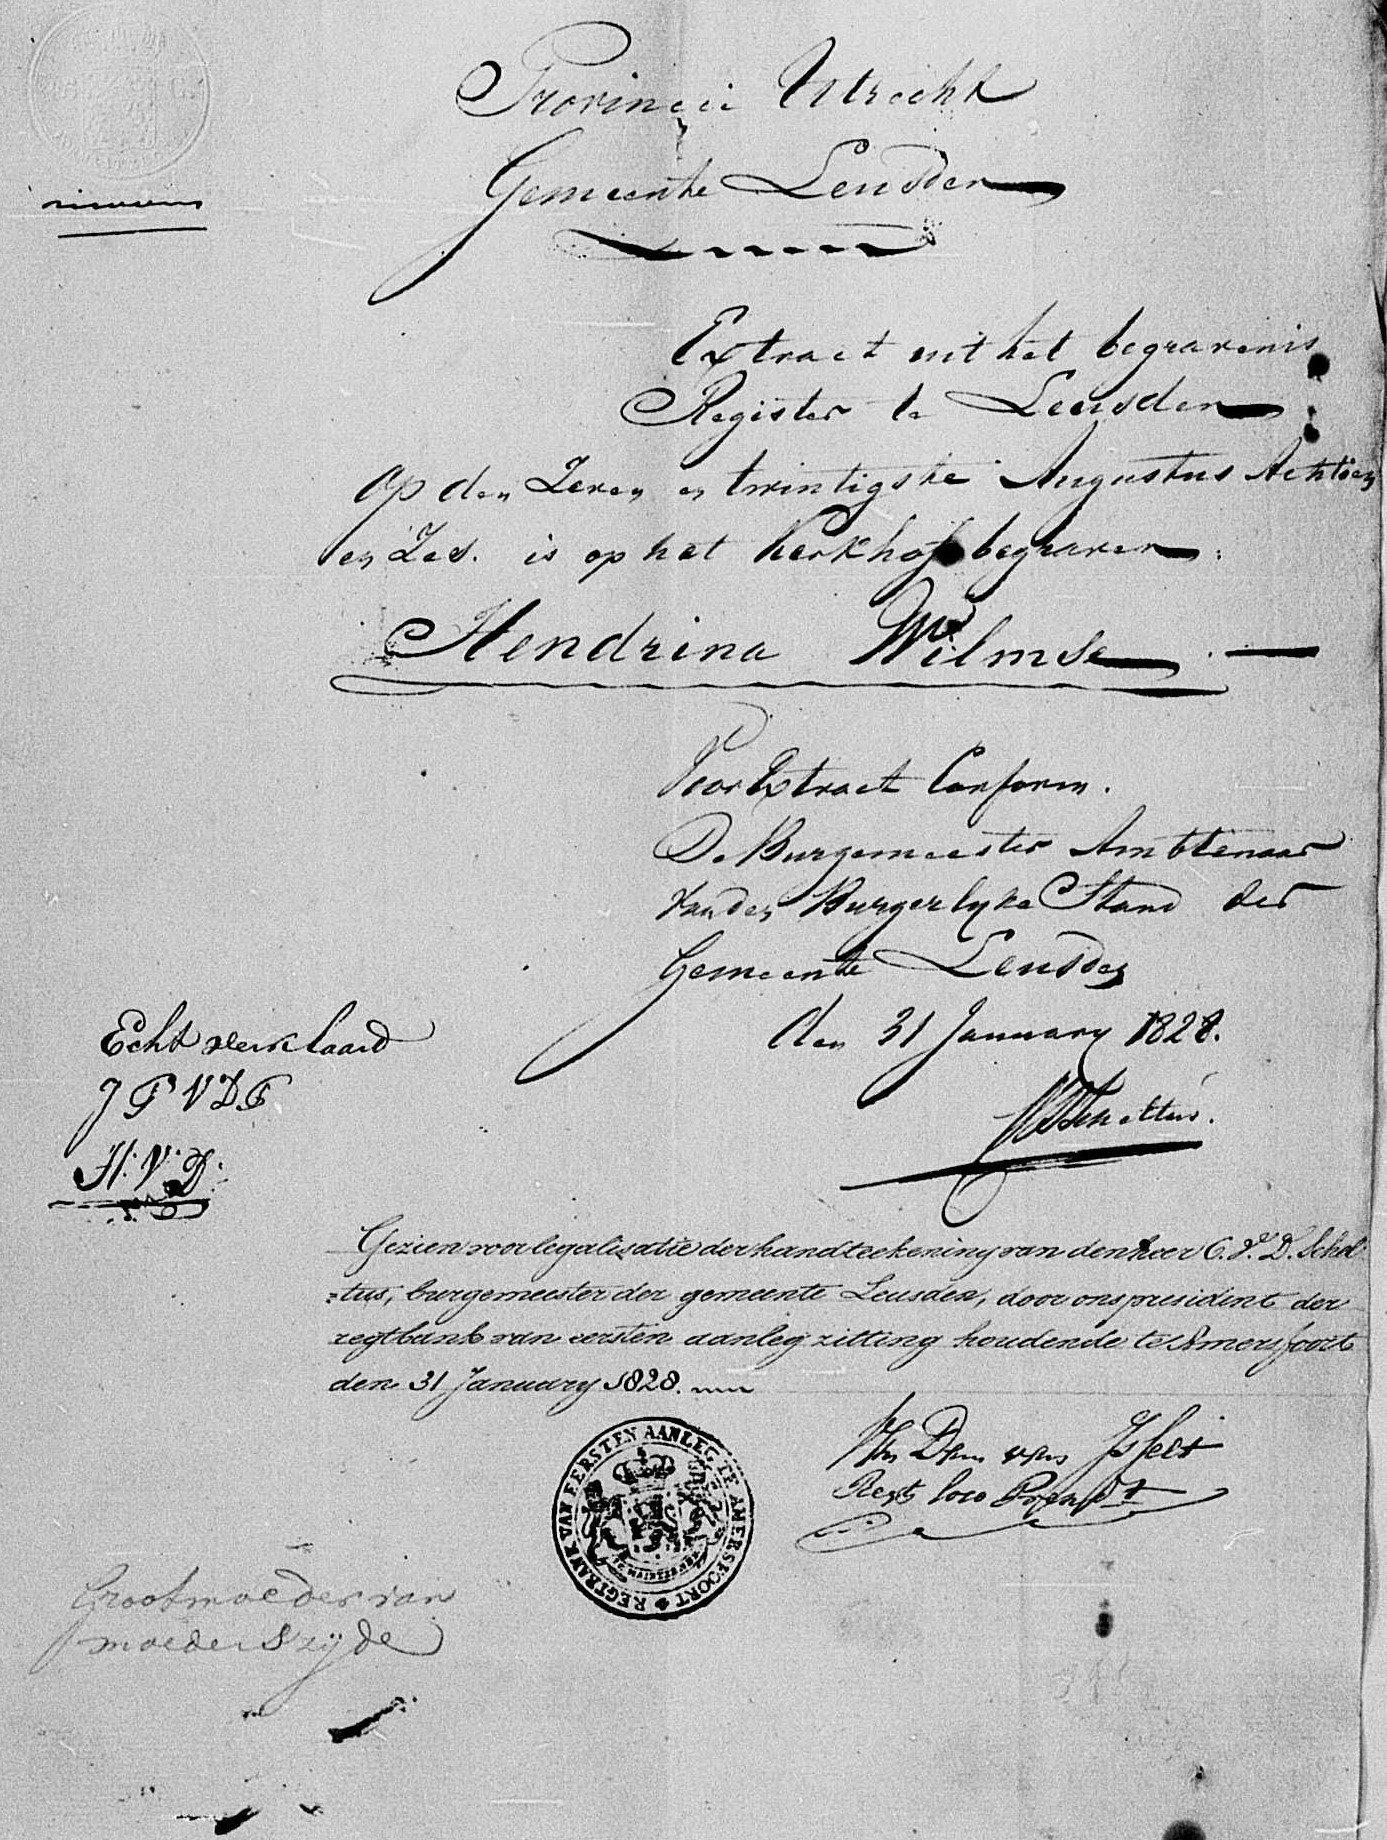 Provincie Utrecht
Gemeente Leusden
Extract uit het begravenis
Register te Leusden
op den Zeven en twintigste Augustus Achtien
en Zes. is op het Kerkhof begraven
Hendrina Wilmse
Voor Extract Conform.
De Burgemeester Ambtenaar
van den Burgerlyke Stand der
Gemeente Leusden
den 31 January 1828.
Scholtus.
Echt verklaard
J F V D F
H. V. D.
Gezien voor legalisatie der handteekening van den heer C. J. D. Schol
=tus, burgemeester der gemeente Leusden, door ons president der
regtbank van eersten aanleg zitting houdende te Amersfoort
den 31 January 1828.
Dam van Isselt
Regt loco Presidt
REGTBANK VAN EERSTEN AANLEG TE AMERSFOORT
JE MAINTIENDRAI
Grootmoeder van
moeders zijde